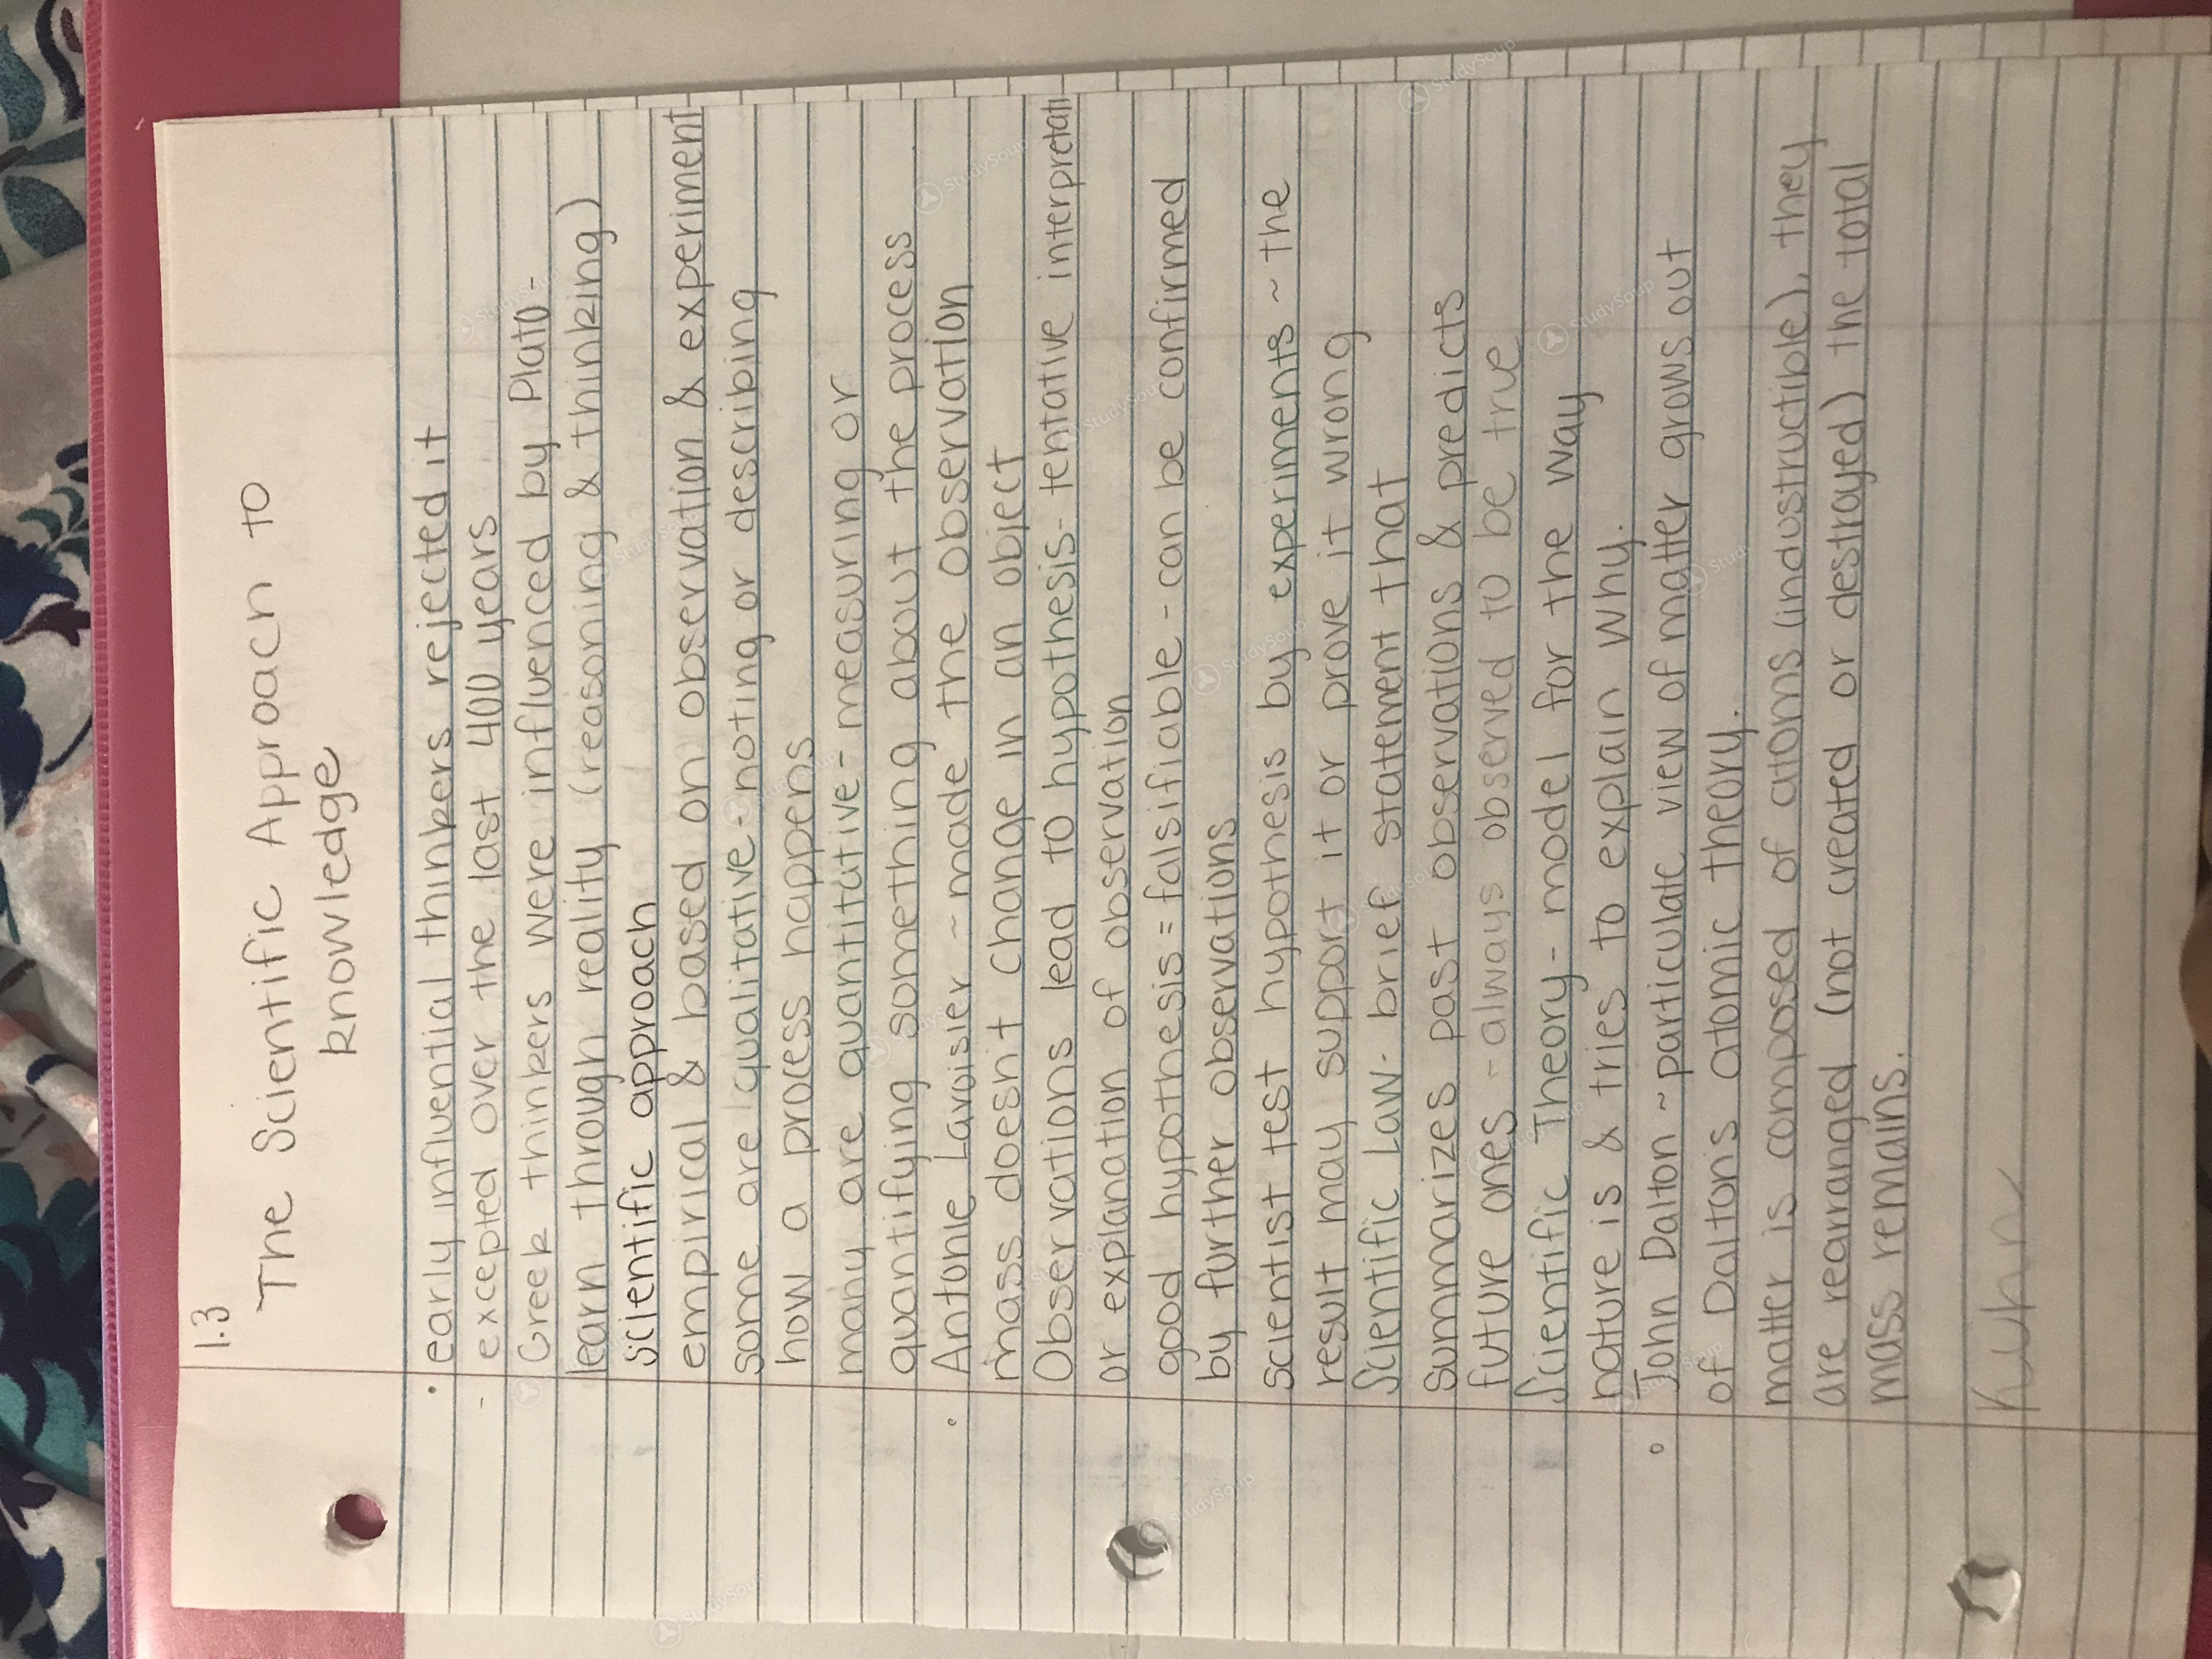 1.3
The Scientific Approach to
knowledge
• early influential thinkers rejected it
- excepted over the last 400 years
Greek thinkers were influenced by Plato -
learn through reality (reasoning & thinking)
scientific approach
empirical & based on observation & experiment
some are qualitative - noting or describing
how a process happens
many are quantitative - measuring or
quantifying something about the process
• Antonie Lavoisier ~ made the observation
mass doesn't change in an object
Observations lead to hypothesis - tentative interpretati
or explanation of observation
good hypothesis = falsifiable - can be confirmed
by further observations
scientist test hypothesis by experiments ~ the
result may support it or prove it wrong
Scientific Law - brief statement that
summarizes past observations & predicts
future ones - always observed to be true
Scientific Theory - model for the way
nature is & tries to explain why.
• John Dalton ~ particulate view of matter grows out
of Dalton's atomic theory.
matter is composed of atoms (industructible), they
are rearranged (not created or destroyed) the total
mass remains.
kuhn
StudySoup